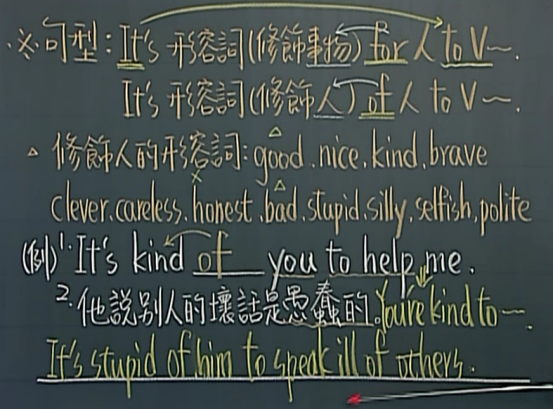 ※句型：It's 形容詞(修飾事物) for 人 to V～.
It's 形容詞(修飾人) of 人 to V～.
△ 修飾人的形容詞：good.nice.kind.brave
clever.careless.honest.bad.stupid.silly.selfish.polite
(例) 1. It's kind of you to help me.
2. 他說別人的壞話是愚蠢的。You're kind to ～.
It's stupid of him to speak ill of others.